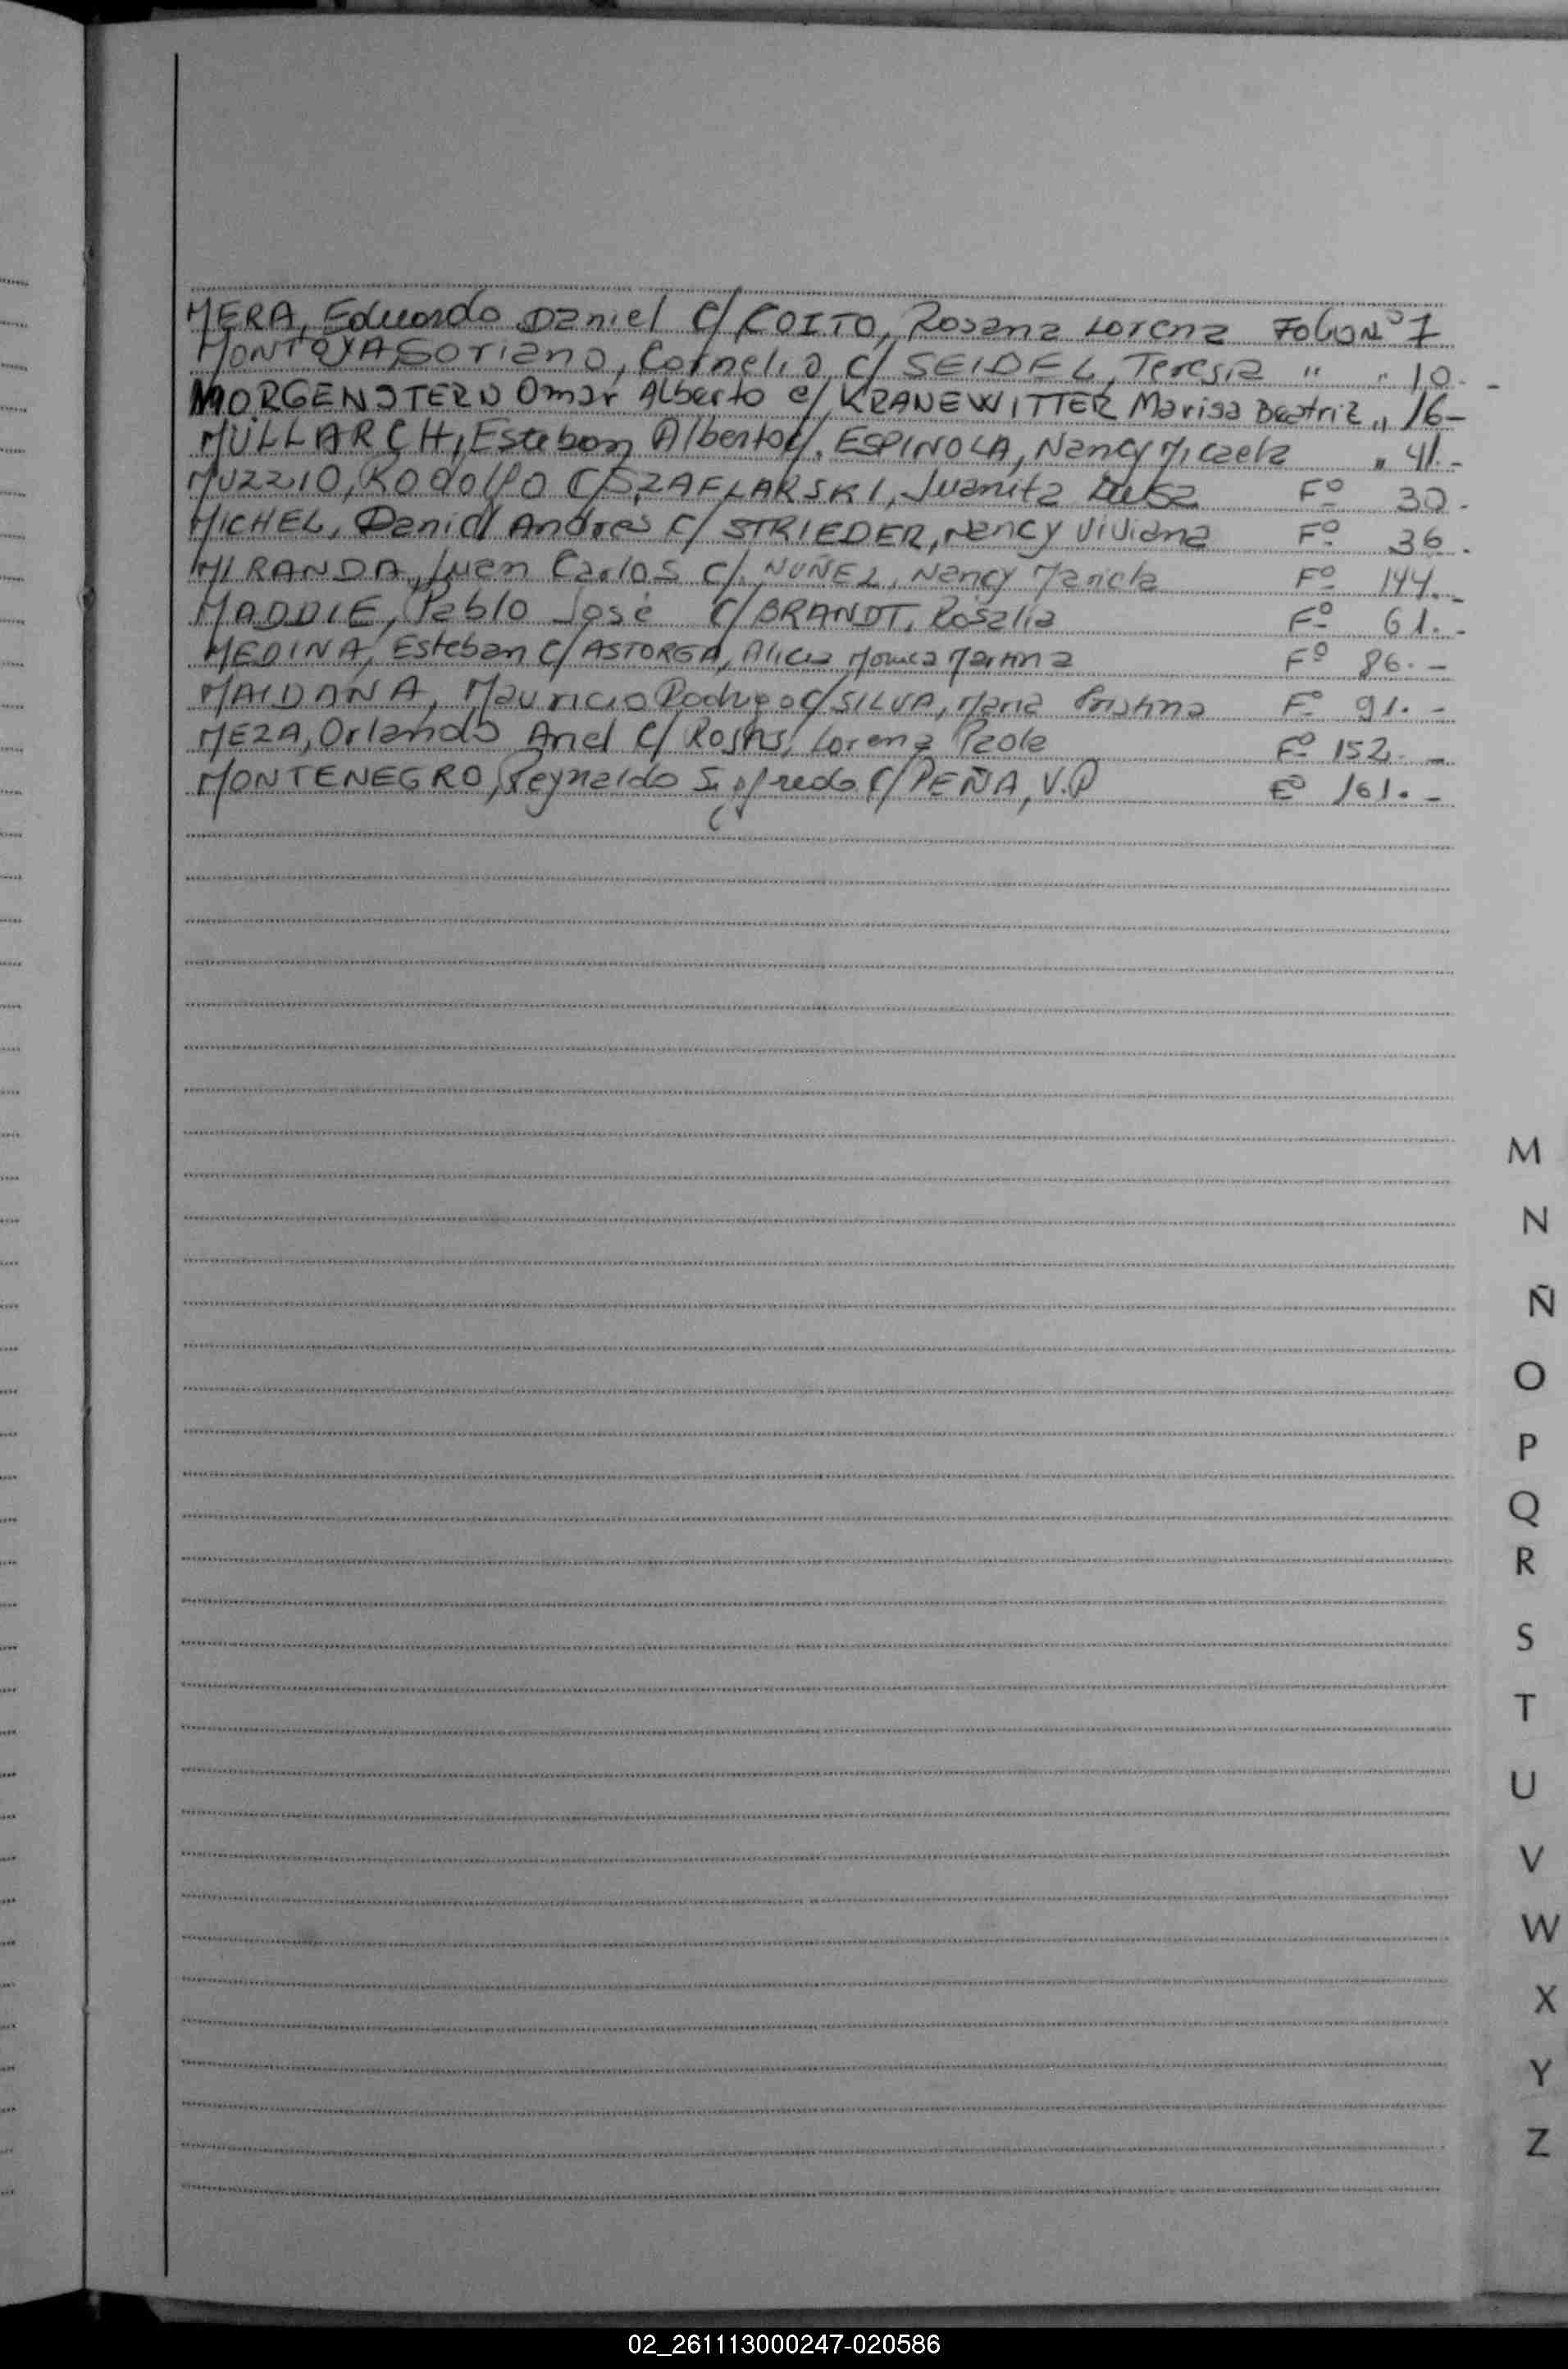 MERA, Eduardo Daniel C/ COITO, Rosana Lorena FOLIO Nº 7
MONTOYA SORiano, Cornelio C/ SEIDEL, Teresia " " 10.-
MORGENSTERN Omar Alberto c/ KRANEWITTER Marisa Beatriz " 16-
MÜLLARCH, Esteban Alberto c/. ESPINOLA, Nancy Micaela " 41.-
MUZZIO, Rodolfo C/ SZAFLARSKI, Juanita Luisa Fº 30.
MICHEL, Daniel Andres C/ STRIEDER, Nancy Viviana Fº 36.
MIRANDA, Juan Carlos C/. NUÑEZ, Nancy Mariela Fº 144.-
MADDIE, Pablo José C/ BRANDT, Rosalia Fº 61.-
MEDINA, Esteban C/ ASTORGA, Alicia Monica Martina Fº 86.-
MAIDANA, Mauricio Rodrigo C/ SILVA, Maria Cristina Fº 91.-
MEZA, Orlando Ariel C/ Lorena Paola Fº 152.-
MONTENEGRO, Reynaldo Sigfredo C/ PEÑA, V. Fº 161.-
M
N
Ñ
O
P
Q
R
S
T
U
V
W
X
Y
Z
02_261113000247-020586